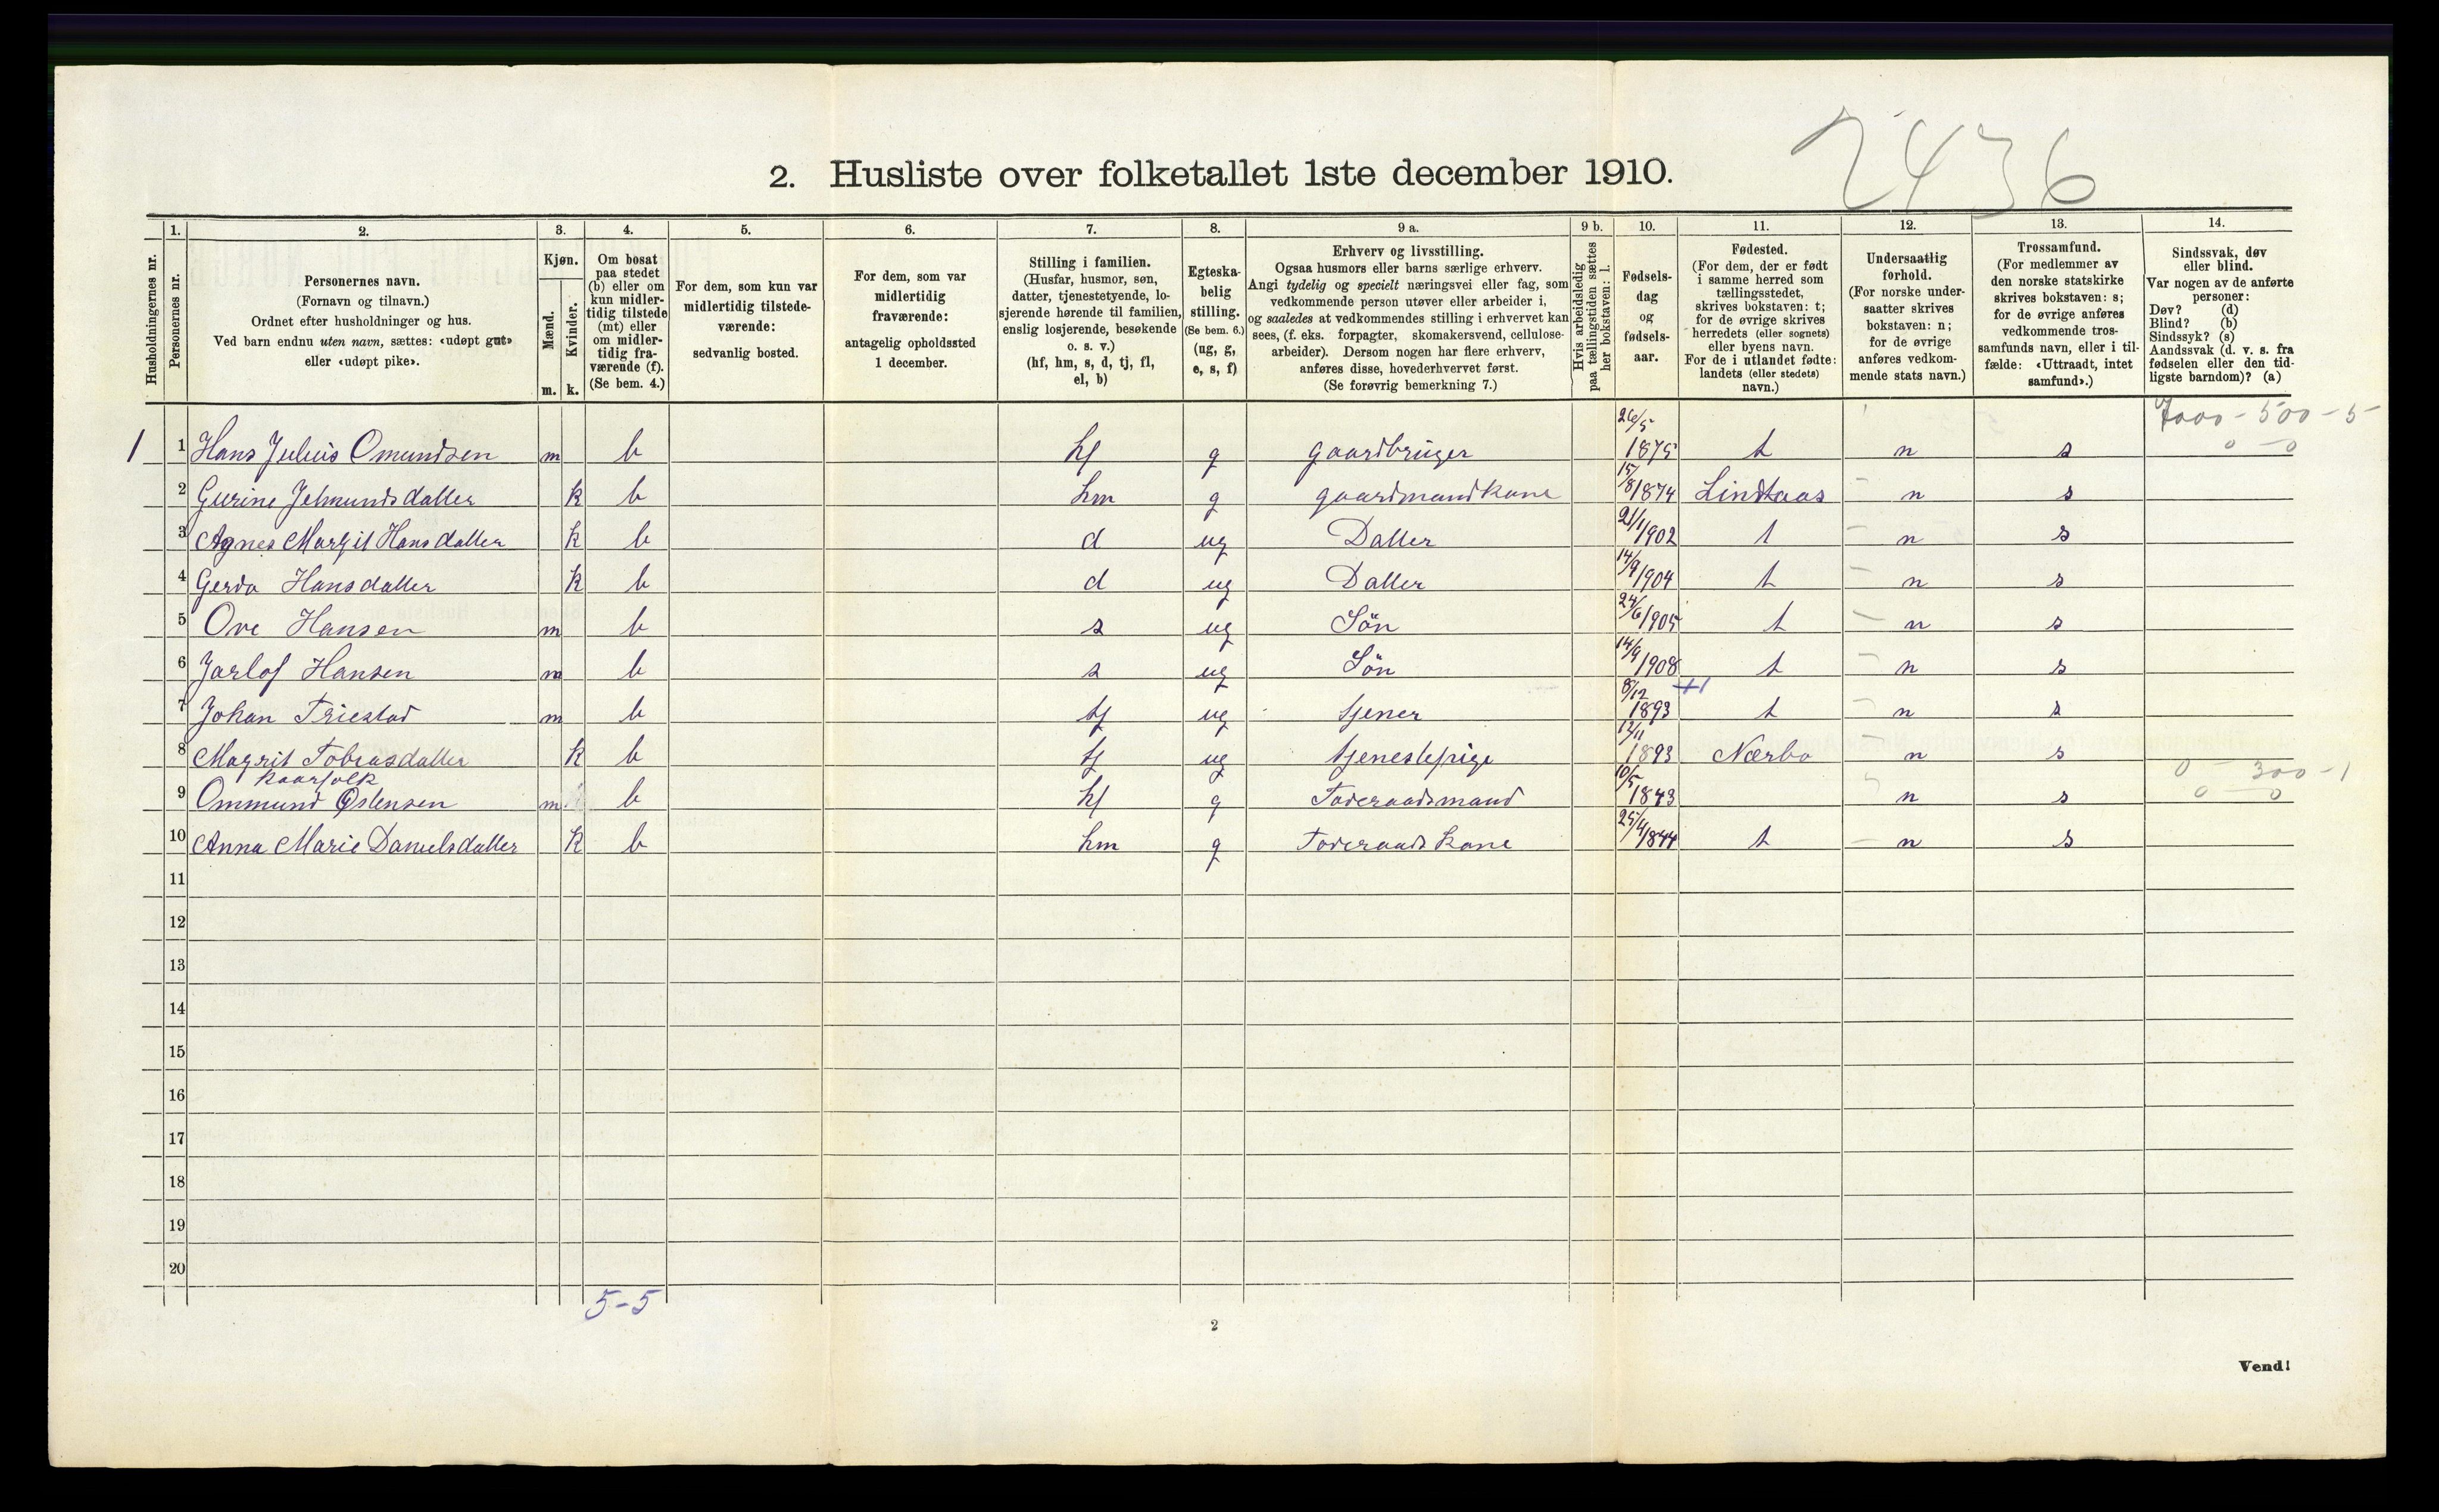 2436
2. Husliste over folketallet 1ste december 1910.
1. 2. 3. 4. 5. 6. 7. 8. 9 a. 9 b. 10. 11. 12. 13. 14.
Husholdningernes nr.
Personernes nr.
Personernes navn.
(Fornavn og tilnavn.)
Ordnet efter husholdninger og hus.
Ved barn endnu uten navn, sættes: «udøpt gut»
eller «udøpt pike».
Kjøn.
Mænd.
Kvinder.
m. k.
Om bosat
paa stedet
(b) eller om
kun midler-
tidig tilstede
(mt) eller
om midler-
tidig fra-
værende (f).
(Se bem. 4.)
For dem, som kun var
midlertidig tilstede-
værende:
sedvanlig bosted.
For dem, som var
midlertidig
fraværende:
antagelig opholdssted
1 december.
Stilling i familien.
(Husfar, husmor, søn,
datter, tjenestetyende, lo-
sjerende hørende til familien,
enslig losjerende, besøkende
o. s. v.)
(hf, hm, s, d, tj, fl,
el, b)
Egteska-
belig
stilling.
(Se bem. 6.)
(ug, g,
e, s, f)
Erhverv og livsstilling.
Ogsaa husmors eller barns særlige erhverv.
Angi tydelig og specielt næringsvei eller fag, som
vedkommende person utøver eller arbeider i,
og saaledes at vedkommendes stilling i erhvervet kan
sees, (f. eks. forpagter, skomakersvend, cellulose-
arbeider). Dersom nogen har flere erhverv,
anføres disse, hovederhvervet først.
(Se forøvrig bemerkning 7.)
Hvis arbeidsledig
paa tællingstiden sættes
her bokstaven: l.
Fødsels-
dag
og
fødsels-
aar.
Fødested.
(For dem, der er født
i samme herred som
tællingsstedet,
skrives bokstaven: t;
for de øvrige skrives
herredets (eller sognets)
eller byens navn.
For de i utlandet fødte:
landets (eller stedets)
navn.)
Undersaatlig
forhold.
(For norske under-
saatter skrives
bokstaven: n;
for de øvrige
anføres vedkom-
mende stats navn.)
Trossamfund.
(For medlemmer av
den norske statskirke
skrives bokstaven: s;
for de øvrige anføres
vedkommende tros-
samfunds navn, eller i til-
fælde: «Uttraadt, intet
samfund».)
Sindssvak, døv
eller blind.
Var nogen av de anførte
personer:
Døv? (d)
Blind? (b)
Sindssyk? (s)
Aandssvak (d. v. s. fra
fødselen eller den tid-
ligste barndom)? (a)
7000 - 500 - 5
0 - 0
1 1 Hans Julius Omundsen m b hf g gaardbruger 26/5 1875 t n s
2 Gurine Jelmundsdatter k b hm g gaardmandkone 15/8 1874 Lindaas n s
3 Agnes Margit Hansdatter k b d ug Datter 21/1 1902 t n s
4 Gerda Hansdatter k b d ug Datter 14/9 1904 t n s
5 Ove Hansen m b s ug Sön 24/6 1905 t n s
6 Jarlof Hansen m b s ug Sön 14/9 1908 t n s
7 Johan Friestad m b tj ug tjener 8/12 1893 +1 t n s
8 Magrit Tobiasdatter k b tj ug tjenestepige 12/11 1893 Nærbo n s
kaarfolk
0 - 300 - 1
0 - 0
9 Ommund Østensen m b hf g Foderaadsmand 10/5 1843 n s
10 Anna Marie Danielsdatter k b hm g Foderaads Kone 25/4 1844 t n s
11
12
13
14
15
16
17
18
19
20
5-5
2
Vend!